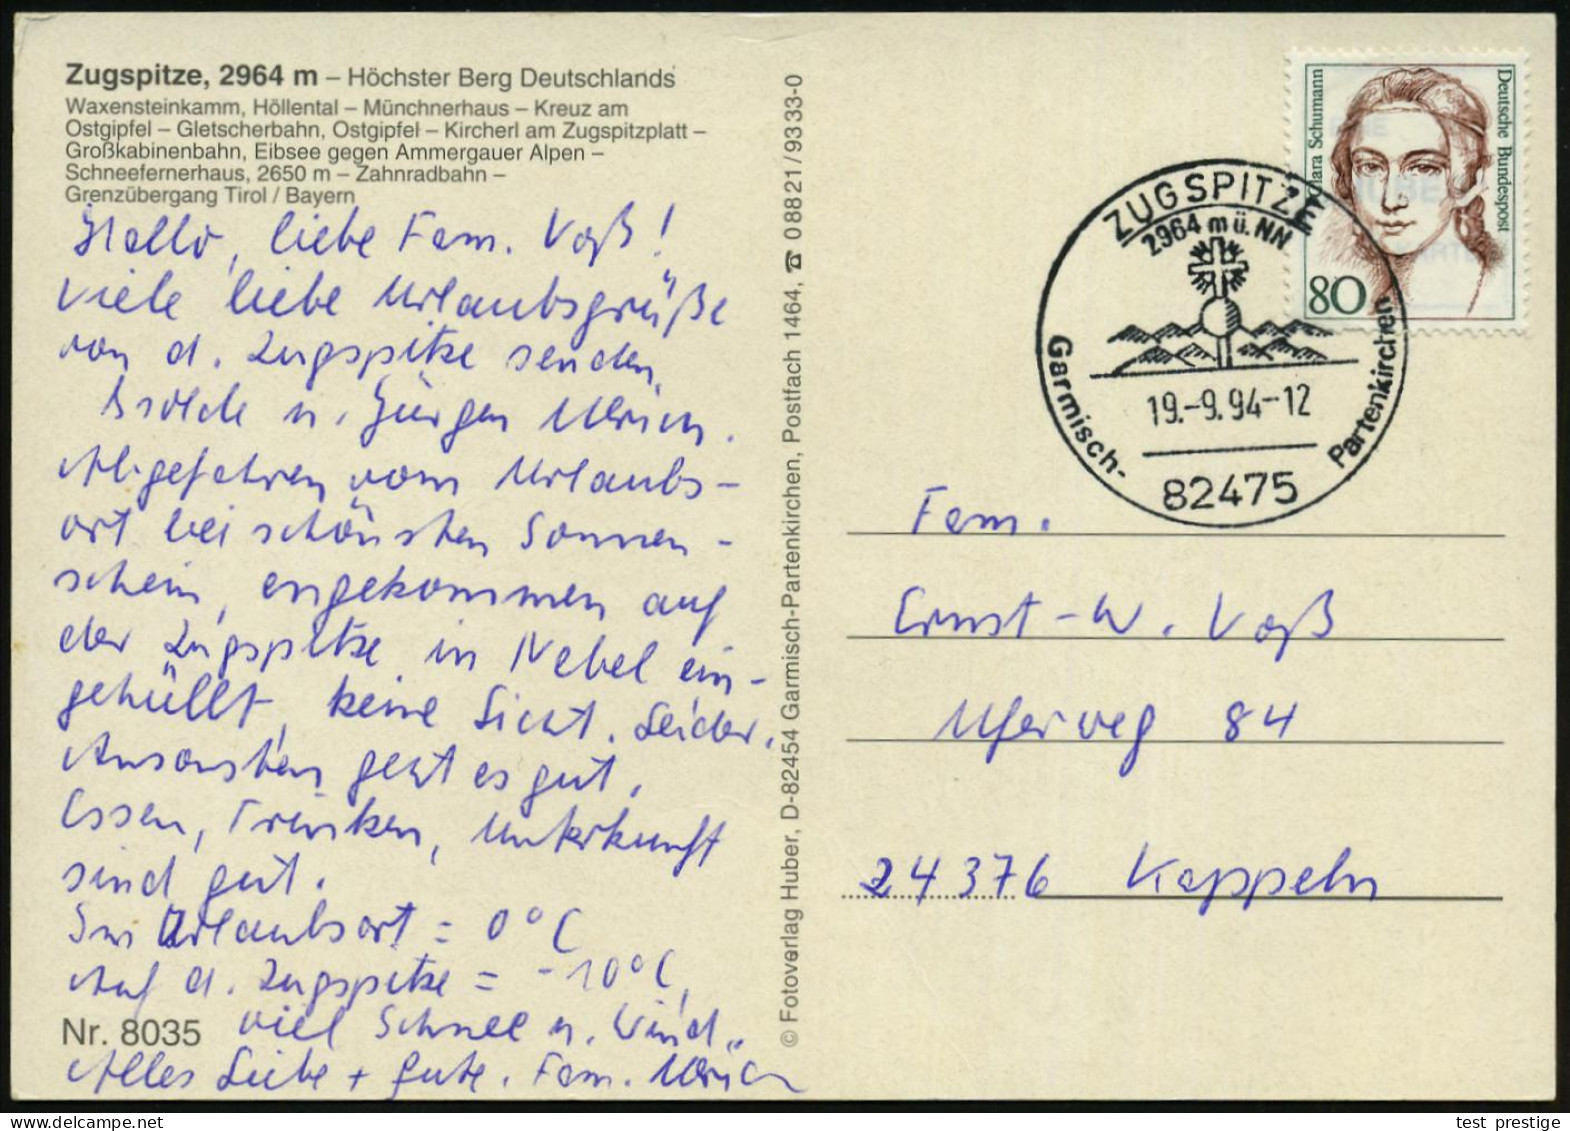 Zugspitze, 2964 m – Höchster Berg Deutschlands
Waxensteinkamm, Höllental – Münchnerhaus – Kreuz am
Ostgipfel – Gletscherbahn, Ostgipfel – Kircherl am Zugspitzplatt –
Großkabinenbahn, Eibsee gegen Ammergauer Alpen –
Schneefernerhaus, 2650 m – Zahnradbahn –
Grenzübergang Tirol / Bayern
Hallo, liebe Fam. Voß!
Viele liebe Urlaubsgrüße
von d. Zugspitze senden
Isolde u. Jürgen Ulrich.
Abgefahren vom Urlaubs-
ort bei schönsten Sonnen-
schein, angekommen auf
der Zugspitze in Nebel ein-
gehüllt, keine Sicht. Leider.
Ansonsten geht es gut.
Essen, Trinken, Unterkunft
sind gut.
Im Urlaubsort = 0°C
Auf d. Zugspitze = -10°C,
viel Schnee u. Wind.
Nr. 8035
Alles Liebe + gute. Fam. Ulrich
© Fotoverlag Huber, D-82454 Garmisch-Partenkirchen, Postfach 1464, ☎ 0 88 21 / 93 33-0
Clara Schumann
Deutsche Bundespost
80
ZUGSPITZE
2964 m ü. NN
19.-9.94-12
Garmisch-
Partenkirchen
82475
Fam.
Ernst-W. Voß
Uferweg 84
24376 Kappeln
test prestige